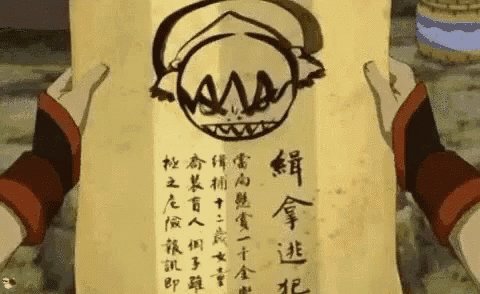 緝拿逃犯
當向懸賞一千金
緝捕十二歲女童
喬裝盲人個子雖
極之危險報訊即